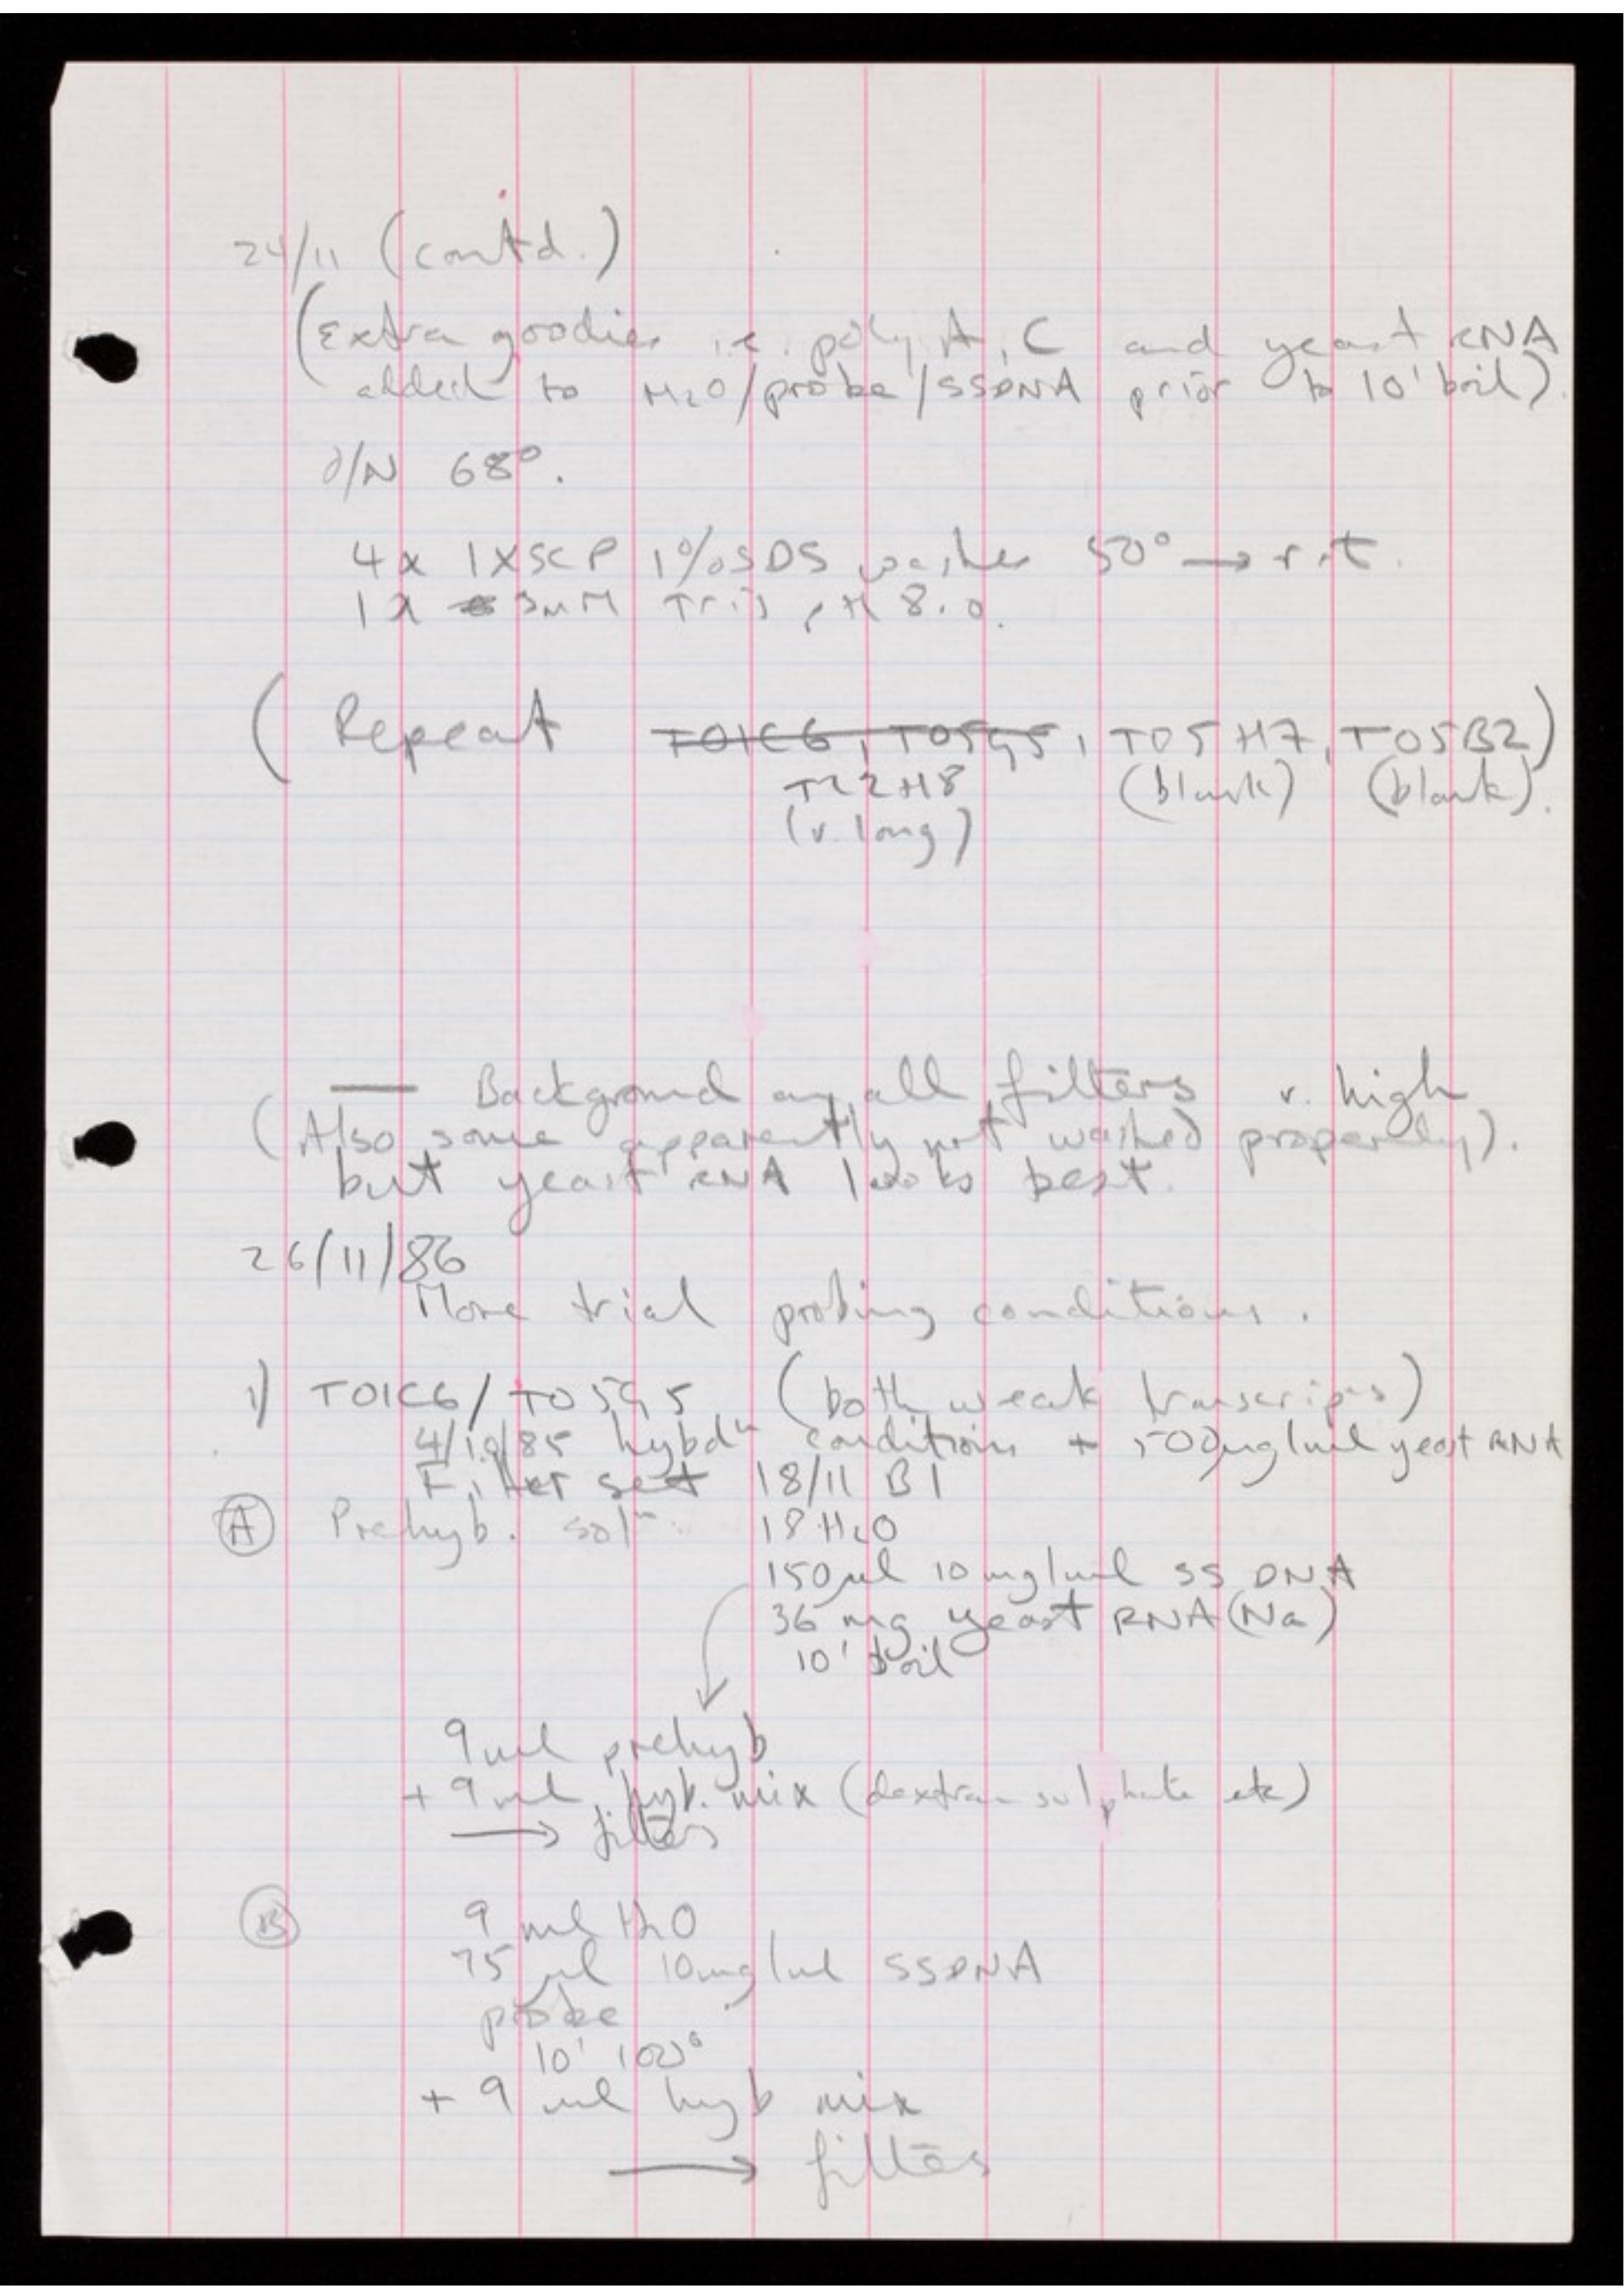 24/11 (contd.)
(Extra goodies i.e. poly A, C and yeast RNA
added to H2O/probe/SSDNA prior to 10' boil).
O/N 68°.
4x 1xSCP 1%SDS washes 50° → r.t.
1x 3mM Tris pH 8.0.
(Repeat T01C6, T05G5, T05H7, T05B2)
T22H8 (blank) (blank).
(v. long)
— Background on all filters v. high
(Also some apparently not washed properly).
but yeast RNA looks best.
26/11/86
More trial probing conditions.
1) T01C6/T05G5 (both weak transcripts)
4/10/85 hybdn conditions + 500µg/ml yeast RNA
Filter set 18/11 B1
(A) Prehyb. soln 18 H2O
150µl 10mg/ml SS DNA
36 mg yeast RNA (Na)
10' boil
9ml prehyb
+ 9ml hyb. mix (dextran sulphate etc)
→ filters
(B) 9 ml H2O
75 µl 10mg/ml SSDNA
probe
10' 100°
+ 9 ml hyb mix
→ filters